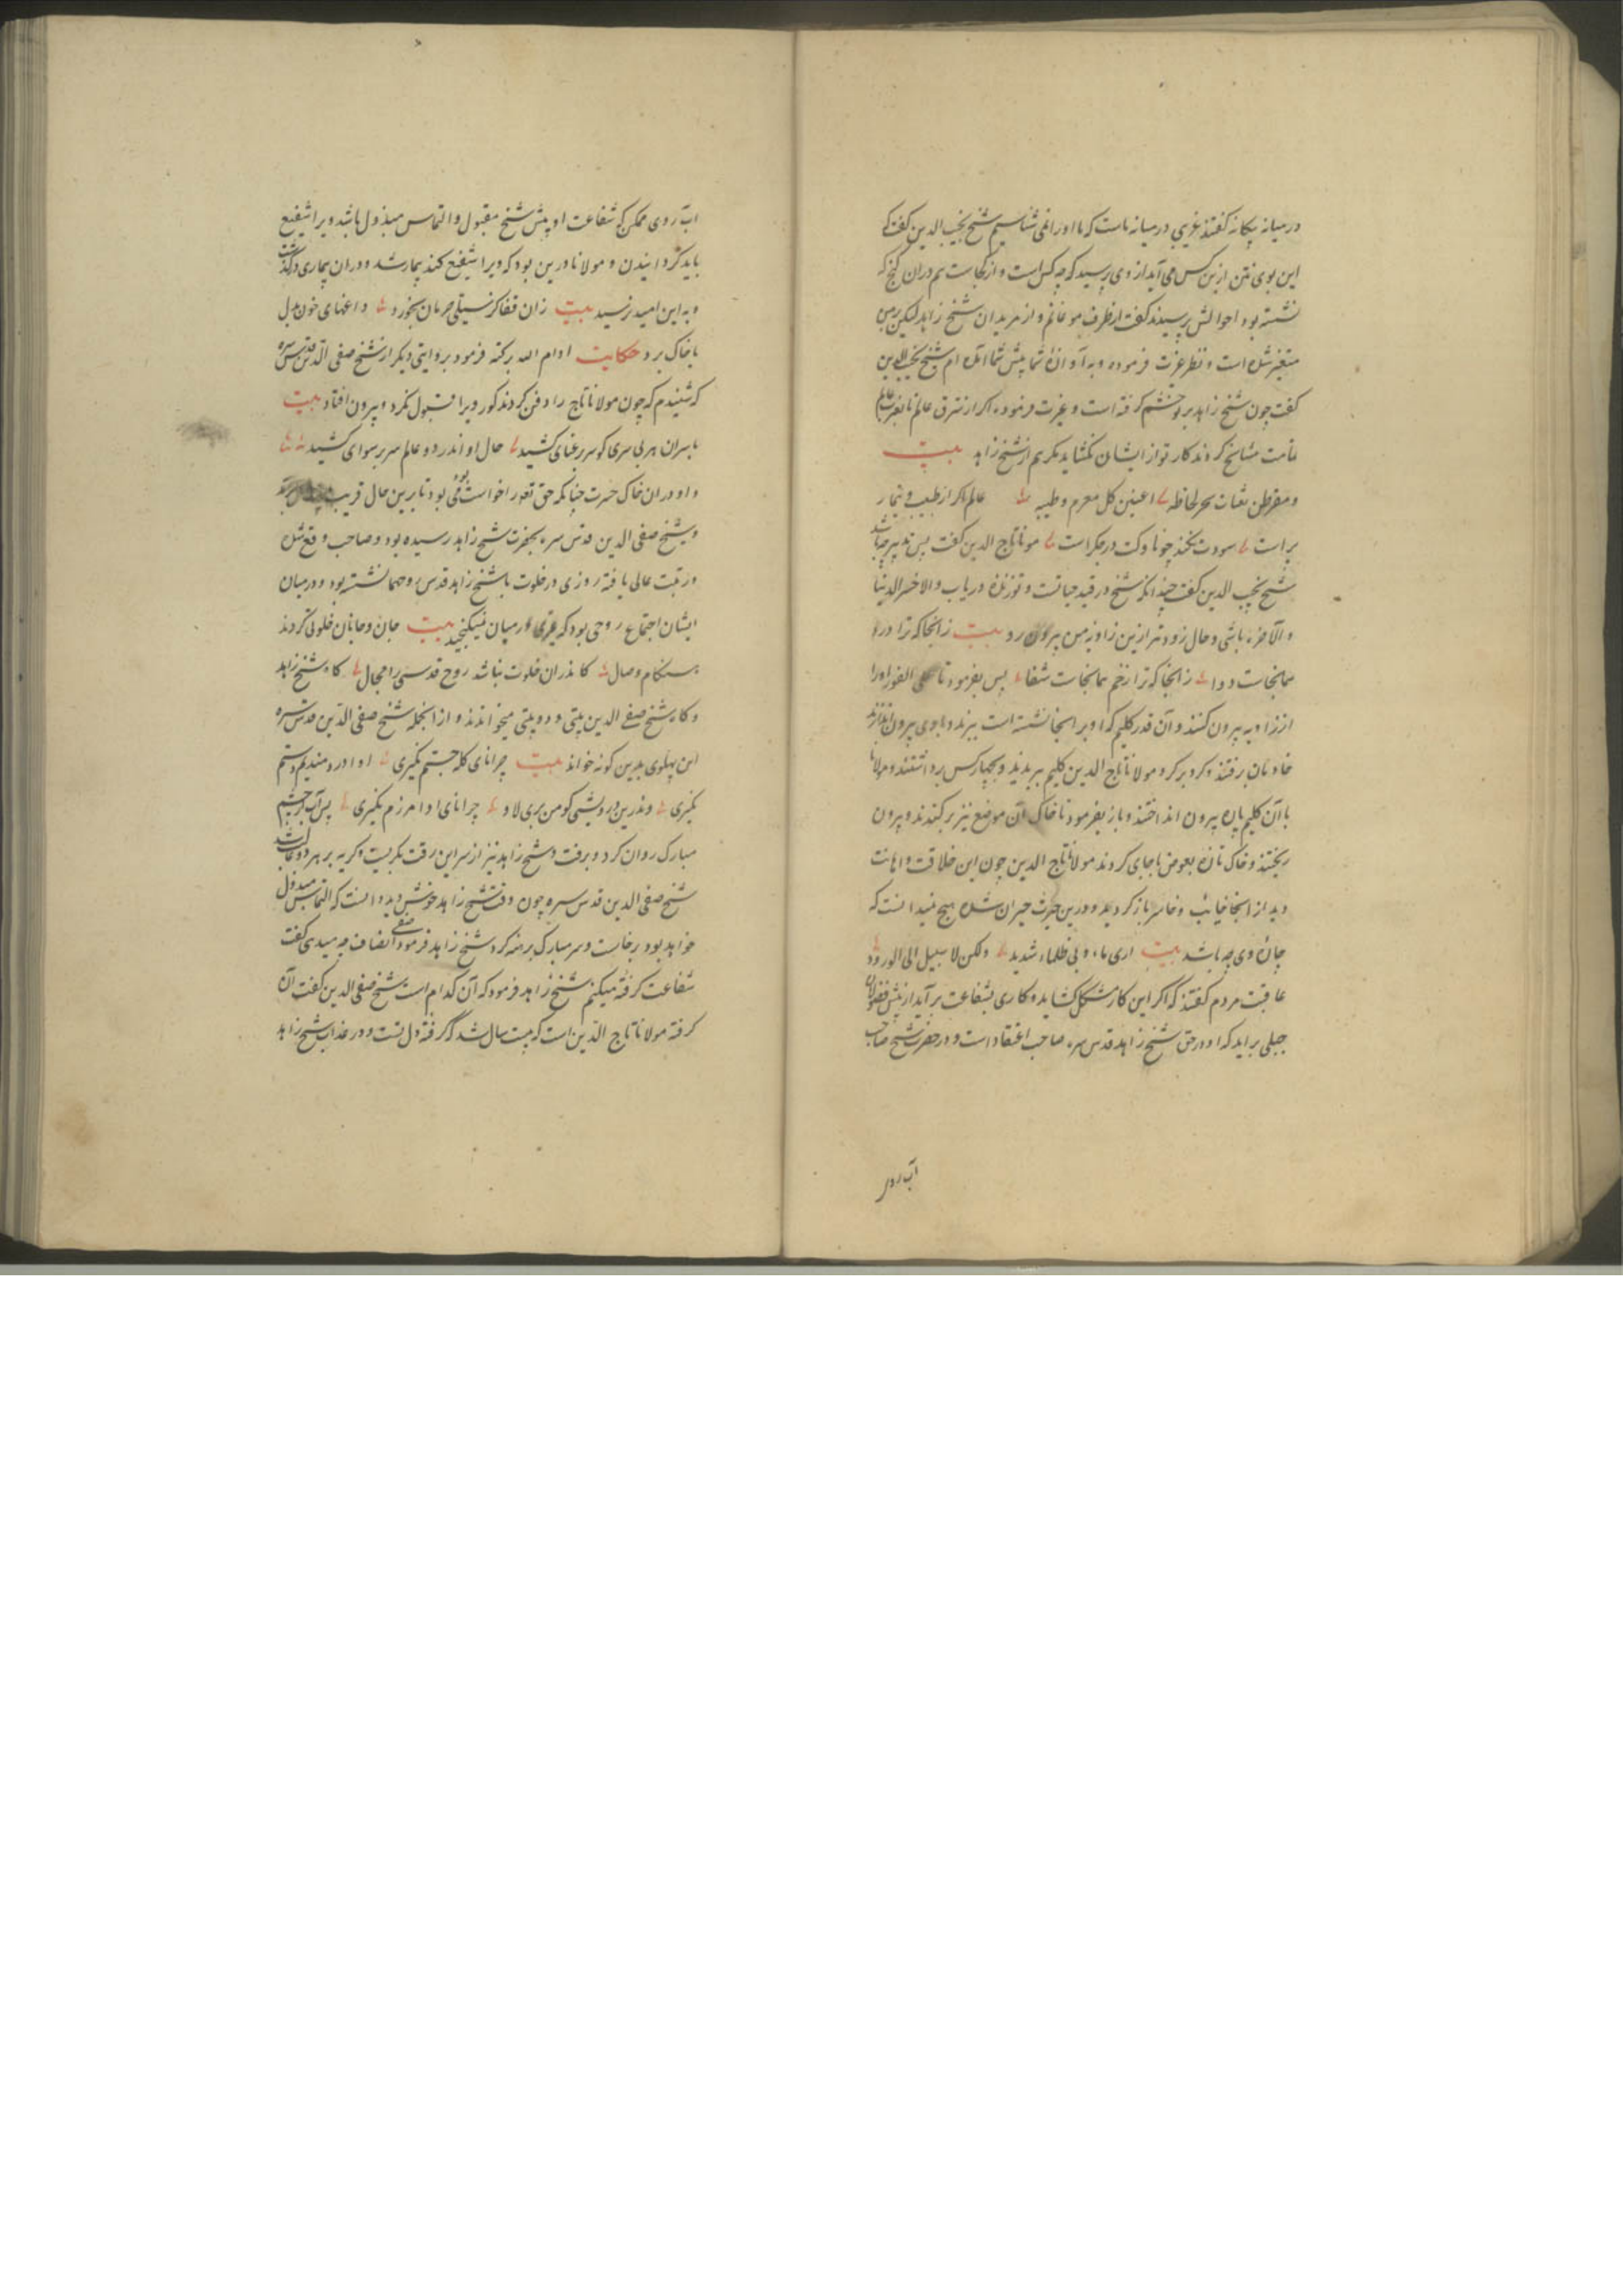 در میانه بیکانه کفتند غریبی در میانه ماست که ما او را نمی شناسیم شیخ نجیب الدین کفت که
این بوی نتن ازین کس می آید از وی پرسید که چه کس است و از کجاست هم دران کنج که
نشسته بود احوالش پرسیدند کفت از طرف موغانم و از مریدان شیخ زاهد لیکن بر من
متغیر شده است و نظر عزت فرموده و به آوازه شما پیش شما آمده ام شیخ نجیب الدین
کفت چون شیخ زاهد بر تو خشم کرفته است و غیرت فرموده اکر از شرق عالم تا بغرب عالم
تمامت مشایخ کرد اند کار تو از ایشان نکشاید مکر هم از شیخ زاهد بیت
عالم اکر از طبیب و تیمار
بر است سودت نکند چو ناوکت در جکر است مولانا تاج الدین کفت پس تدبیر چه باشد
شیخ نجیب الدین کفت چندانکه شیخ در قید حیاتست و تو زنده دریاب والا خسر الدنیا
والآخره باشی و حال زودتر ازین زاویه من بیرون رو بیت زانجا که ترا درد
همانجاست دوا زانجا که ترا زخم همانجات شفا پس بفرمود تا علی الفور او را
از زاویه بیرون کنند و آن قدر کلیم که او بر انجا نشسته است ببرند و با وی بیرون اندازند
خادمان برفتند و کرد بر کرد مولانا تاج الدین کلیم ببریدند و چهار کس برداشتند و مولانا
با آن کلیم پاره بیرون انداختند و باز بفرمود تا خاک آن موضع نیز برکندند و بیرون
ریختند و خاک تازه بعوض با جای کردند مولانا تاج الدین چون این خلاقت و اهانت
دید از انجا خایب و خاسر باز کردید و درین حیرت حیران شده هیچ نمیدانست که
چاره وی چه باشد بیت اری ماء و بی ظماء شدید ولکن لا سبیل الی الورود
عاقبت مردم کفتند که اکر این کار مشکل کشاید و کاری بشفاعت بر آید از پیش
جبلی برآید که او در حق شیخ زاهد قدس سره صاحب اعتقاد است و در حضرت شیخ صاحب
آب روی
آب روی ممکن که شفاعت او پیش شیخ مقبول و التماس مبذول باشد ویرا شفیع
باید کردانیدن و مولانا درین بود که ویرا شفیع کند بیمار شد و دران بیماری درگذشت
و به این امید نرسید بیت زان قفا کز سیلی حرمان بخورد داغهای خون بدل
با خاک برد حکایت ادام الله برکته فرمود بروایتی دیکر از شیخ صفی الدین قدس سره
که شنیدم که چون مولانا تاج را دفن کردند کور ویرا قبول نکرد و بیرون افتاد بیت
با سران هر بی سری کو سر رعنای کشید حال او اندر دو عالم سر برسوای کشید
و او دران خاک حسرت
و شیخ صفی الدین قدس سره بحضرت شیخ زاهد رسیده بود و صاحب وقع شده
و رتبت عالی یافته روزی در خلوت با شیخ زاهد قدس روحهما نشسته بود و در میان
ایشان اجتماع روحی بود که غیری در میان نمیکنجید بیت جان و جانان خلوتی کردند
هنکام وصال کاندران خلوت نباشد روح قدسی را مجال کاه شیخ زاهد
و کاه شیخ صفی الدین بیتی و دو بیتی میخواندند و از انجمله شیخ صفی الدین قدس سره
این پهلوی بدین کونه خواند بیت
پس آب از چشم
مبارک روان کرد و برفت و شیخ زاهد نیز از سر این رقت بکریست و کریه بر هر دو غالب شد
شیخ صفی الدین قدس سره چون وقت شیخ زاهد خوش دید دانست که التماس مبذول
خواهد بود برخاست و سر مبارک برهنه کرد شیخ زاهد فرمود صفی انصاف چه میدی کفت
شفاعت کرفته میکنم شیخ زاهد فرمود که آن کدام است شیخ صفی الدین کفت آن
کرفته مولانا تاج الدین است که بیست سال شد که کرفته دل تست و در عذاب شیخ زاهد